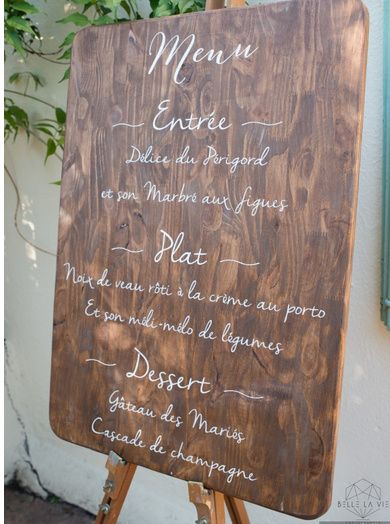 Menu
Entrée
Délice du Périgord
et son Marbré aux figues
Plat
Noix de veau rôti à la crème au porto
Et son méli-mélo de légumes
Dessert
Gâteau des Mariés
Cascade de champagne
BELLE LA VIE